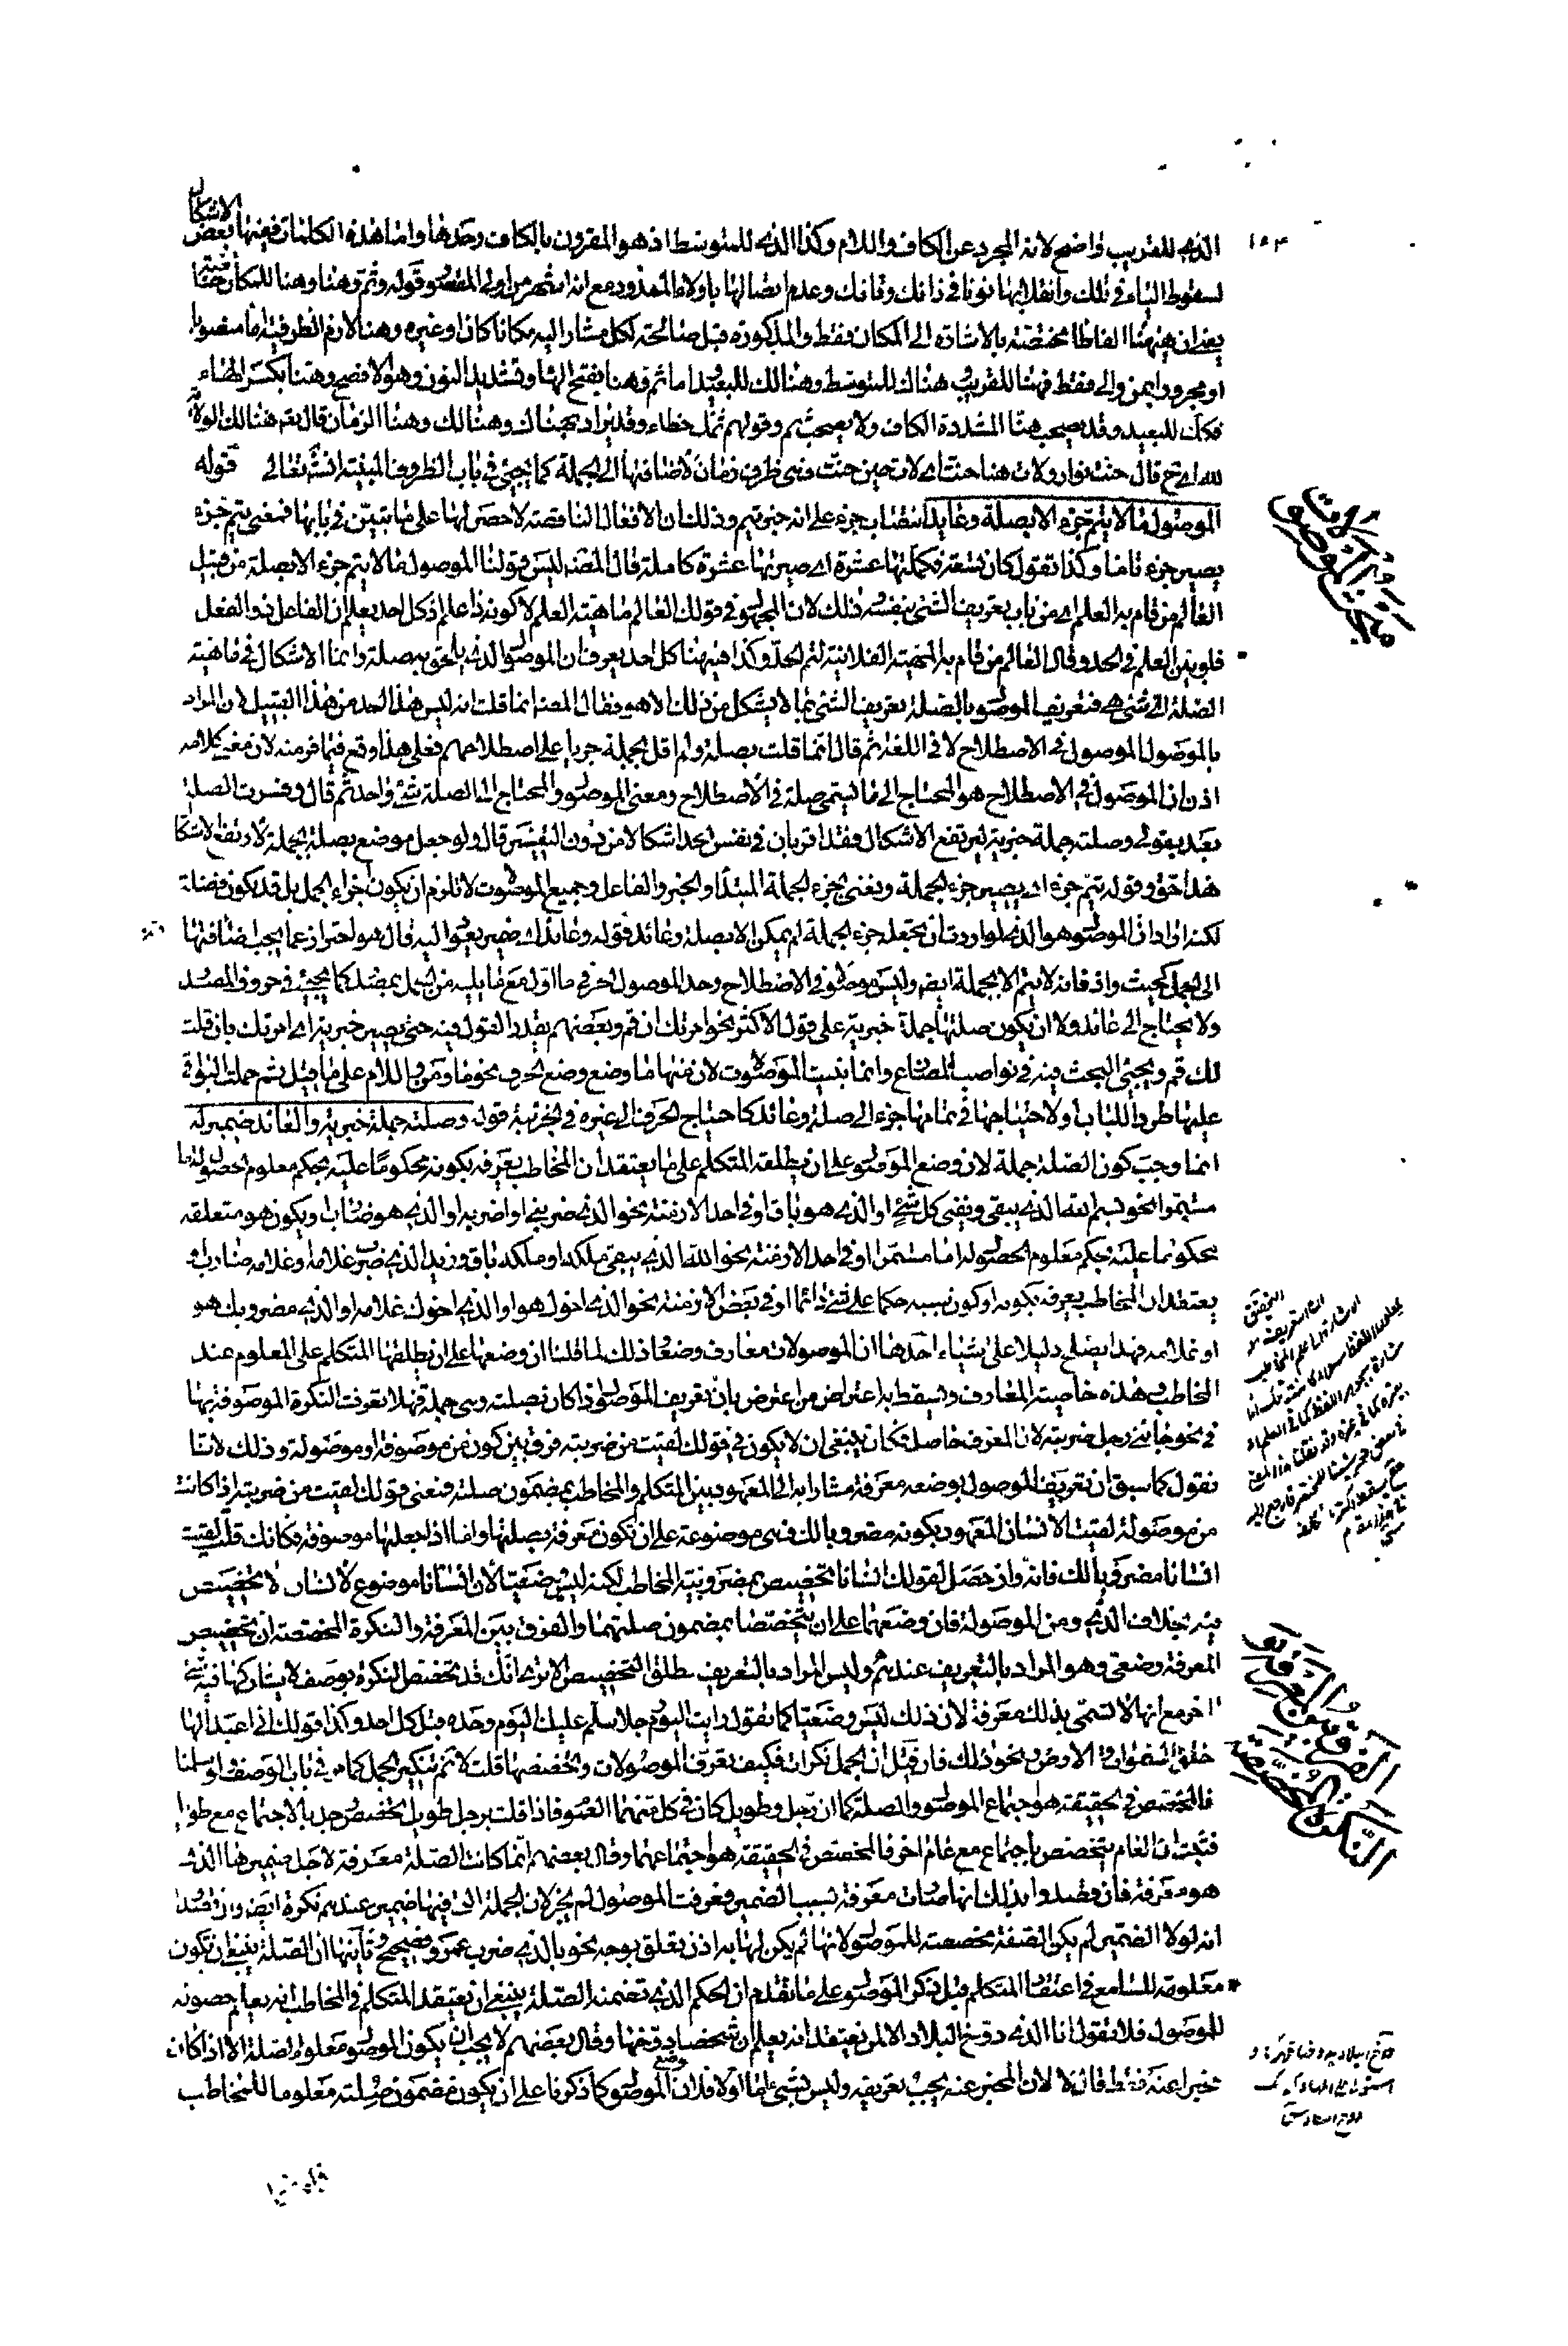 الذى للقريب واضح لانه المجرد عن الكاف واللام وكذا الذى للمتوسط اذ هو المقرون بالكاف وحدها واما هذه الكلمات ففيها بعض الاشكال
لسقوط الياء فى تلك وانقلابها نونا فى ذانك وتانك وعدم اتصالها باولاء الممدود مع انه اشهر من اولى المقصور قوله وثم وهنا وهنا للمكان خاصة
يعنى ان ههنا الفاظا مختصة بالاشارة الى المكان فقط والمذكورة قبل صالحة لكل مشار اليه مكانا كان او غيره وهنا لازم الظرفية اما منصوبا
او مجرورا بمن والى فقط فهنا للقريب وهناك للمتوسط وهنالك للبعيد واما ثم وهنا بفتح الهاء وتشديد النون وهو الافصح وهنا بكسر الهاء
فكلك للبعيد وقد يصحب هنا المشددة الكاف ولا يصحب ثم وقولهم ثمك خطاء وقد يراد بهناك وهنالك وهنا الزمان قال تعه هنالك الولاية
لله اى ح قال حنت نوار ولات هنا حنت اى لات حين حنت وهى ظرف زمان لاضافتها الى الجملة كما يجيئ فى باب الظروف المبنية انشاء تعالى قوله
الموصول ما لا يتم جزء الا بصلة وعايد انتصاب جزء على انه خبر يتم وذلك ان الافعال الناقصة لا حصر لها على ما يتبين فى بابها فمعنى يتم جزء
يصير جزء تاما وكذا تقول كان تسعة فكملتها عشرة اى صيرتها عشرة كاملة قال المصنف ليس قولنا الموصول ما لا يتم جزء الا بصلة من قبيل
العالم من قام به العلم اى من باب تعريف الشئ بنفسه ذلك لان المجهول فى قولك العالم ماهية العلم لا كونه ذا علم اذ كل احد يعلم ان الفاعل ذو الفعل
فلو بين العلم فى الحد وقال العالم من قام به المهية الفلانية لتم الحد وكذا ههنا كل احد يعرف ان الموصول الذى يلحق به صلة وانما الاشكال فى ماهية
الصلة اى شئ هى فتعريف الموصول بالصلة تعريف الشئ بما لا يشكل من ذلك الا هو فقال المصنف انما قلت انه ليس هذا الحد من هذا القبيل لان المراد
بالموصول الموصول فى الاصطلاح لا فى اللغة ثم قال انما قلت بصلة ولم اقل بجملة جريا على اصطلاحهم فعلى هذا وقع فيما فر منه لان معنى كلامه
اذن ان الموصول فى الاصطلاح هو المحتاج الى ما يسمى صلة فى الاصطلاح ومعنى الموصول والمحتاج الى الصلة شئ واحد ثم قال وفسرت الصلة
بعد بقولى وصلته جملة خبرية ليرتفع الاشكال فقد اقر بان فى نفس الحد اشكالا من دون التفسير قال ولو جعل موضع بصلة بجملة لارتفع الاشكال
هذا حق وقوله يتم جزء اى يصير جزء الجملة ونعنى بجزء الجملة المبتدأ والخبر والفاعل وجميع الموصولات لا تلزم ان يكون اجزاء الجمل بل قد يكون فضلة
لكنه اراد ان الموصول هو الذى لو اردت ان تجعله جزء الجملة لم يمكن الا بصلة وعائد فقوله وعائد اى ضمير يعود اليه قال هو احتراز عما يجب اضافتها
الى الجمل كحيث واذ فانه لا يتم الا بجملة ايض وليس موصولا فى الاصطلاح وحد الموصول الحرفى ما اول مع ما يليه من الجمل بمصدر كما يجيئ فى حروف المصدر
ولا يحتاج الى عائد ولا ان يكون صلتها جملة خبرية على قول الاكثر نحو امرتك ان قم وبعضهم يقدر القول فيه حتى يصير خبرية اى امرتك بان قلت
لك قم ويجيئ البحث فيه فى نواصب المضارع وانما بنيت الموصولات لان منها ما وضع وضع الحرف نحو ما ومن واللام على ما قيل ثم حملت البواقى
عليها طردا للباب او لاحتياجها فى تمامها جزءا الى صلة وعائد كاحتياج الحرف الى غيره فى الجزئية قوله وصلته جملة خبرية والعائد ضمير له
انما وجب كون الصلة جملة لان وضع الموصول على ان يطلقه المتكلم على ما يعتقد ان المخاطب يعرفه بكونه محكوما عليه بحكم معلوم الحصول له اما
مستمرا نحو بسم الله الذى يبقى ويفنى كل شئ او الذى هو باق او فى احد الازمنة نحو الذى ضربنى او اضربه او الذى هو ضارب او يكون هو متعلقه
محكوما عليه بحكم معلوم الحصول له اما مستمرا او فى احد الازمنة نحو الله الذى يبقى ملكه او ملكه باق وزيد الذى ضرب غلامه او غلامه ضارب او
يعتقد ان المخاطب يعرفه بكونه او كون سببه حكما على شئ دائما او فى بعض الازمنة نحو الذى اخوك هو او الذى اخوك غلامه او الذى مضروبك هو
او غلامه فهذا يصلح دليلا على شياء احدها ان الموصولات معارف وضعا وذلك لما قلنا ان وضعها على ان يطلقها المتكلم على المعلوم عند
المخاطب وهذه خاصية المعارف ويسقط به اعتراض من اعترض بان تعريف الموصول اذا كان بصلته وهى جملة فهلا تعرفت النكرة الموصوفة بها
فى نحو جائنى رجل ضربته لان المعرف حاصل فكان ينبغى ان لا يكون فى قولك لقيت من ضربته فرق بين كون من موصوفة او موصولة وذلك لانا
نقول كما سبق ان تعريف الموصول بوضعه معرفة مشارا به الى المعهود بين المتكلم والمخاطب بمضمون صلته فمعنى قولك لقيت من ضربته اذا كانت
من موصولة لقيت الانسان المعهود بكونه مضروبا لك فهى موضوعة على ان تكون معرفة بصلتها واما اذا جعلتها موصوفة فكانك قلت لقيت
انسانا مضروبا لك فانه وان حصل لقولك انسانا تخصيص بمضروبية المخاطب لكنه ليس وضعيا لان انسانا موضوع لانسان لا تخصيص
فيه بخلاف الذى ومن الموصولة فان وضعهما على ان يتخصصا بمضمون صلتهما والفرق بين المعرفة والنكرة المخصصة ان تخصيص
المعرفة وضعى وهو المراد بالتعريف عندهم وليس المراد بالتعريف مطلق التخصيص الا ترى انك قد تخصص النكرة بوصف لا يشاركها فيه شئ
اخر مع انها لا تسمى بذلك معرفة لان ذلك ليس وضعيا كما تقول رايت اليوم رجلا سلم عليك اليوم وحده قبل كل احد وكذا قولك انى اعبد الها
خلق السموات والارض ونحو ذلك فان قيل ان الجمل نكرات فكيف تعرف الموصولات وتخصصها قلت لا نم تنكير الجمل كما مر فى باب الوصف ولو سلمنا
فالمخصص فى الحقيقة هو اجتماع الموصول والصلة كما ان رجل وطويل كان فى كل منهما العموم فاذا قلت برجل طويل تخصص رجل بالاجتماع مع طويل
فثبت ان العام يتخصص باجتماع مع عام اخر فالمخصص فى الحقيقة هو اجتماعهما وقال بعضهم انما كانت الصلة معرفة لاجل ضميرها الذى
هو معرفة فان قصدوا بذلك انها صارت معرفة بسبب الضمير فعرفت الموصول لم يجز لان الجملة التى فيها ضمير عندهم نكرة ايض وان قصد
انه لولا الضمير لم يكن الصفة مخصصة للموصول لانها لم يكن لها به اذن تعلق بوجه نحو بالذى ضرب عمرو فصحيح وثانيها ان الصلة ينبغى ان تكون
معلومة للسامع فى اعتقاد المتكلم قبل ذكر الموصول على ما تقدم ان الحكم الذى تضمنه الصلة ينبغى ان يعتقد المتكلم فى المخاطب انه يعلم حصوله
للموصول فلا تقول انا الذى دوخ البلاد الا لمن يعتقد انه يعلم ان شخصا دوخها وقال بعضهم لا يجب ان يكون الموصول معلوم الصلة الا اذا كان
مخبرا عنه فقط قال لان المخبر عنه يجب تعريفه وليس بشئ اما اولا فلان وضع الموصول كما ذكرنا على ان يكون مضمون صلته معلوما للمخاطب
مبحث الموصولات
الفرق بين المعرفة والنكرة المخصصة